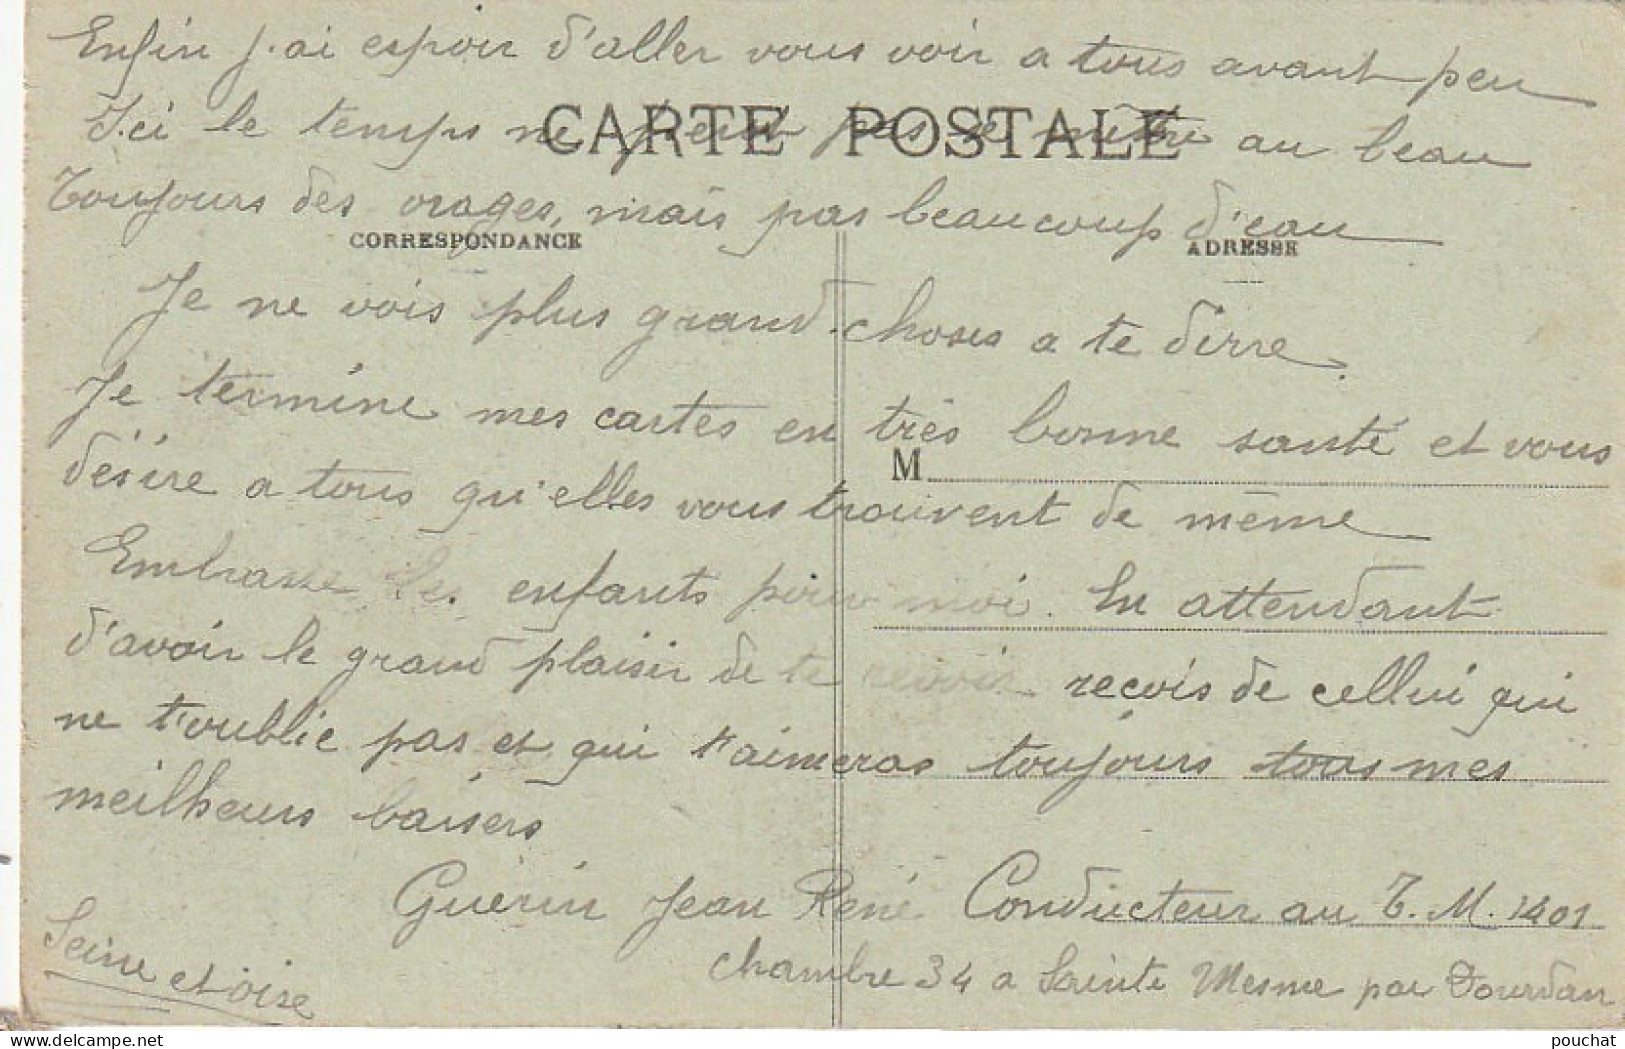 Enfin j'ai espoir d'aller vous voir a tous avant peu
Ici le temps ne peut pas se mettre au beau
CARTE POSTALE
Toujours des orages, mais pas beaucoup d'eau
CORRESPONDANCE
ADRESSE
Je ne vois plus grand-choses a te dirre.
Je termine mes cartes en très bonne santé et vous
M
désire a tous qu'elles vous trouvent de même
Embrasse les enfants pour moi. En attendant
d'avoir le grand plaisir de te revoir reçois de cellui qui
ne t'oublie pas et qui t'aimeras toujours tous mes
meilheurs baisers
Guérin Jean René Conducteur au T. M. 1401
chambre 34 a Sainte Mesme par Dourdan
Seine et oise
delcampe.net
pouchat